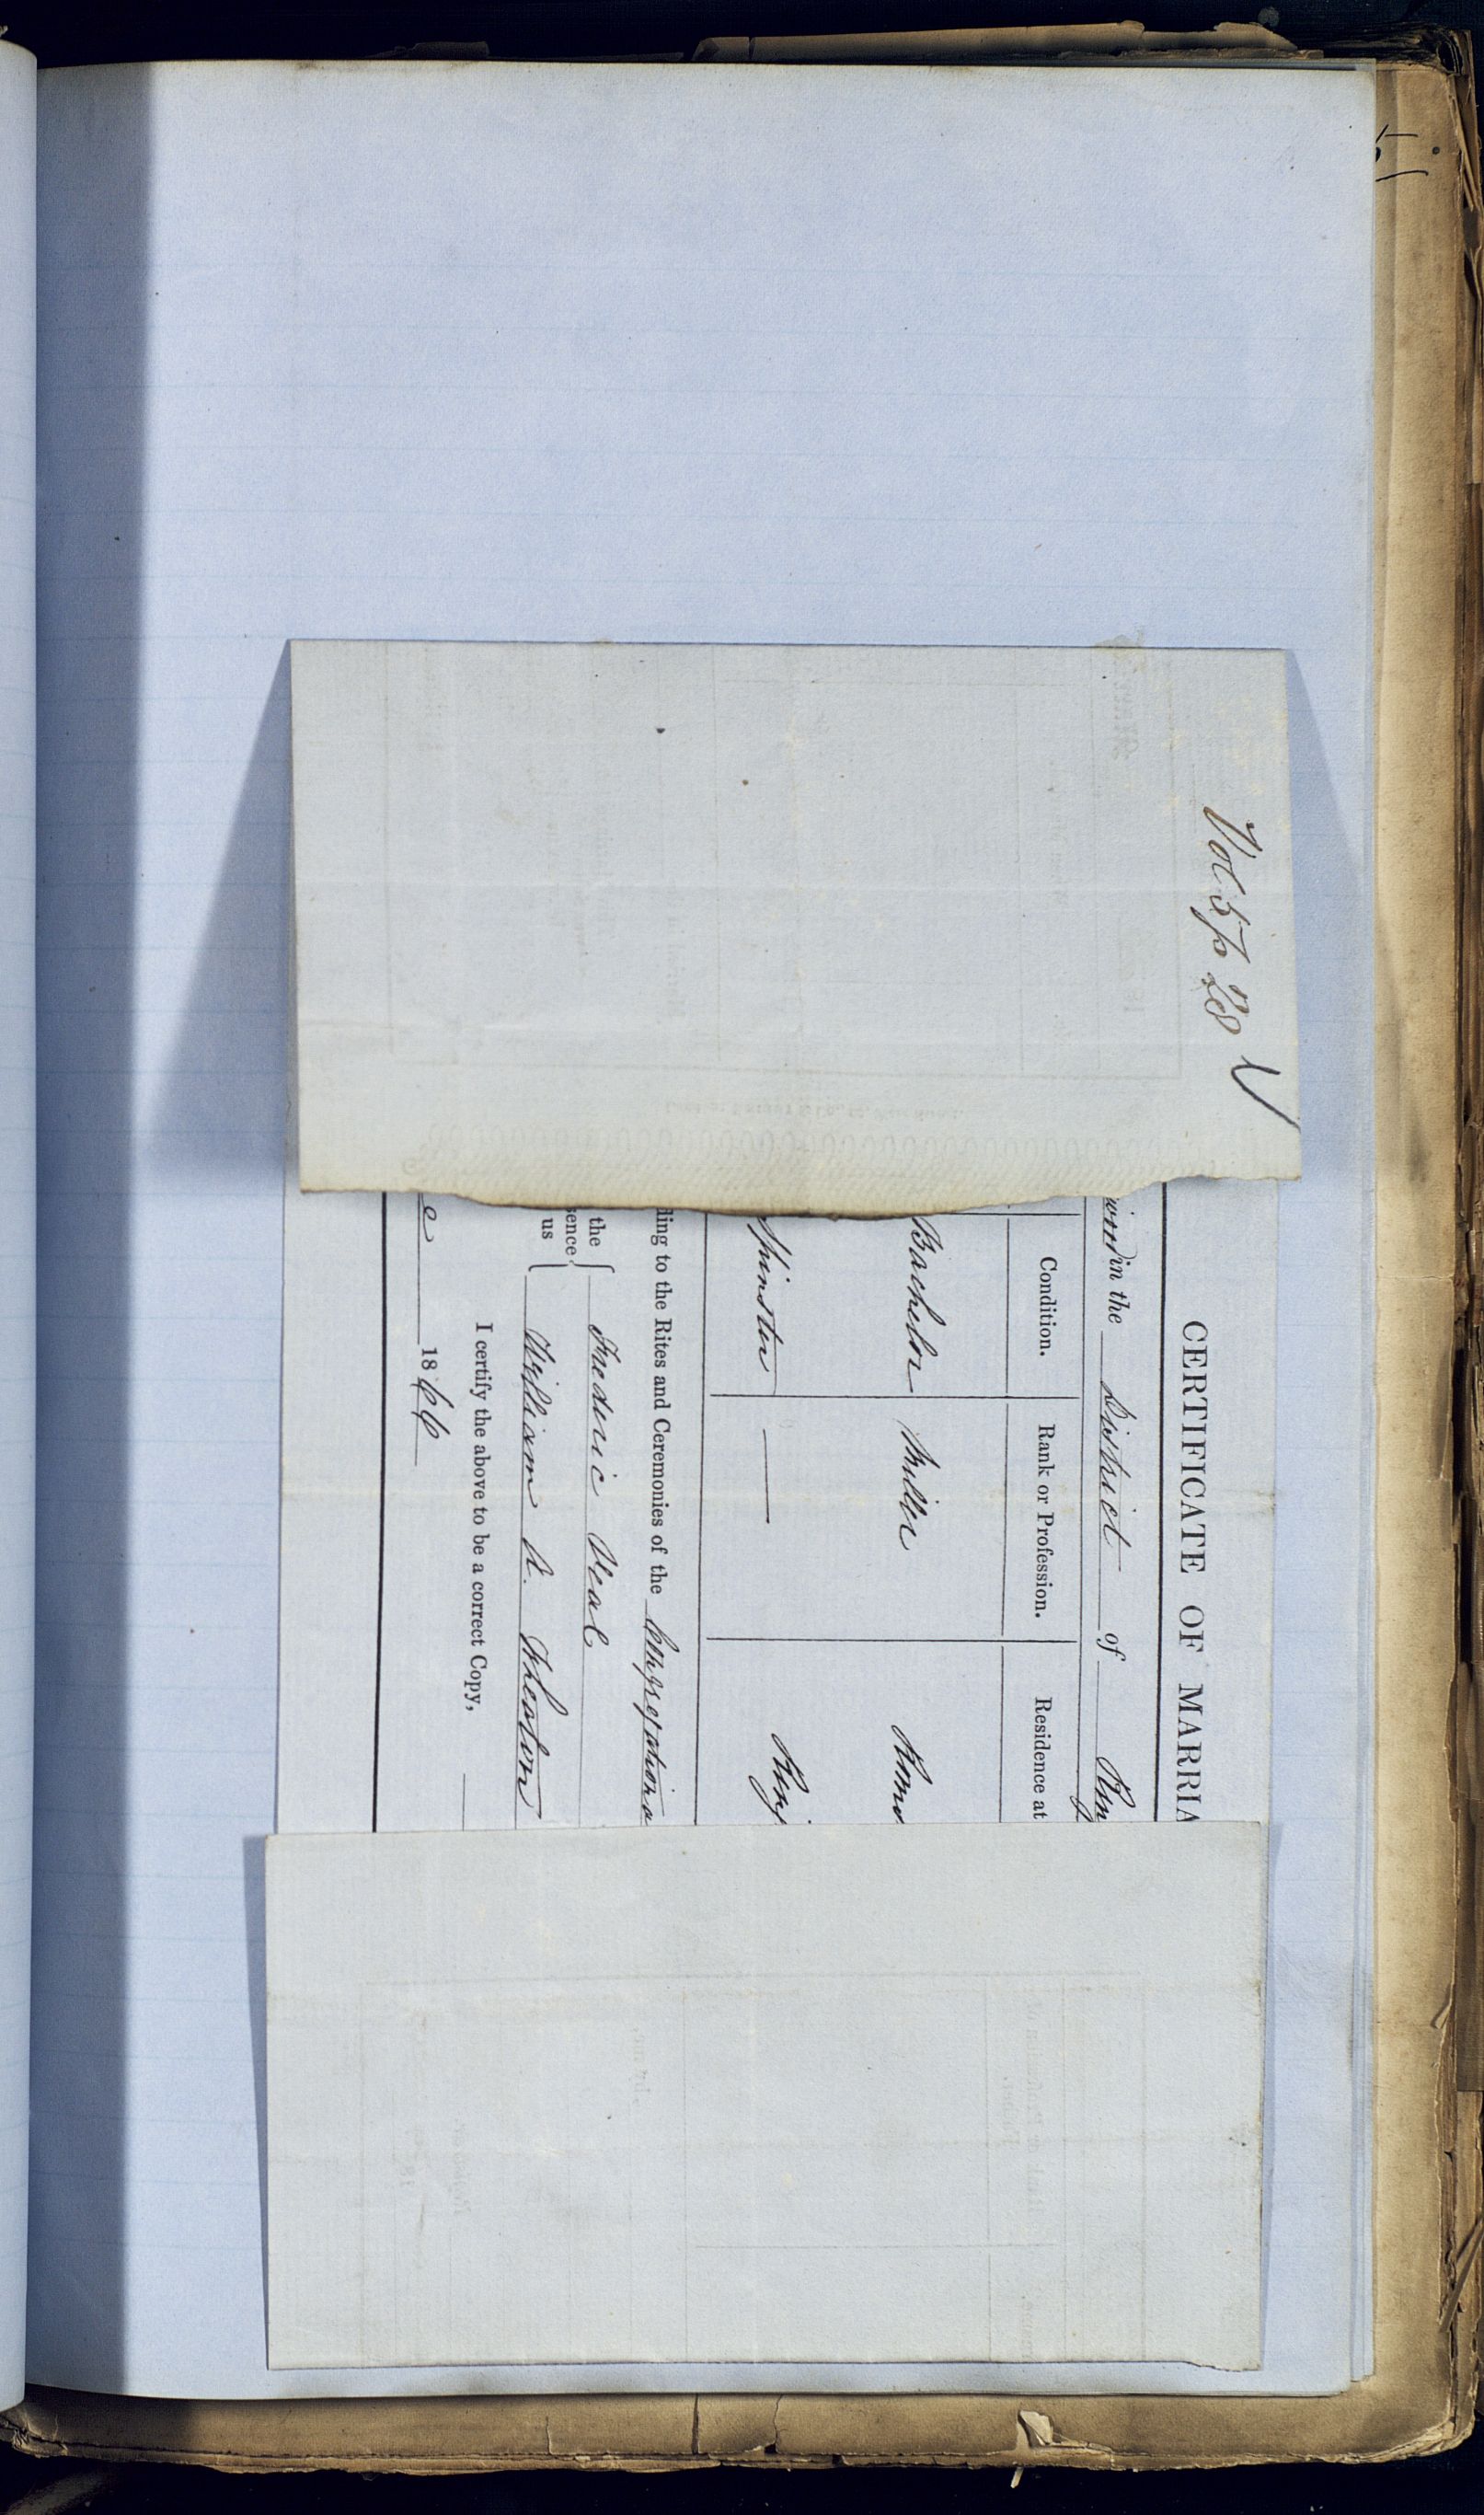 Vol 5 p 28
CERTIFICATE OF MARRIA
in the District of
Condition. Rank or Profession. Residence at
Bachelor Miller
Spinster —
ding to the Rites and Ceremonies of the Congregationa
the Frederic Neal
sence
us William A. Wheaton
I certify the above to be a correct Copy,
e 1866